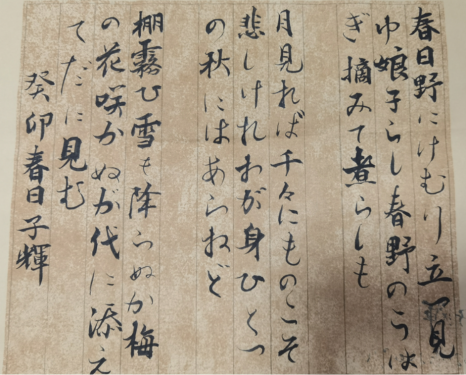 春日野にけむり立つ見
ゆ娘子らし春野のうは
ぎ摘みて煮らしも
月見れば千々にものこそ
悲しけれわが身ひとつ
の秋にはあらねど
棚霧ひ雪も降らぬか梅
の花咲かぬが代に添へ
てだに見む
癸卯春日子輝